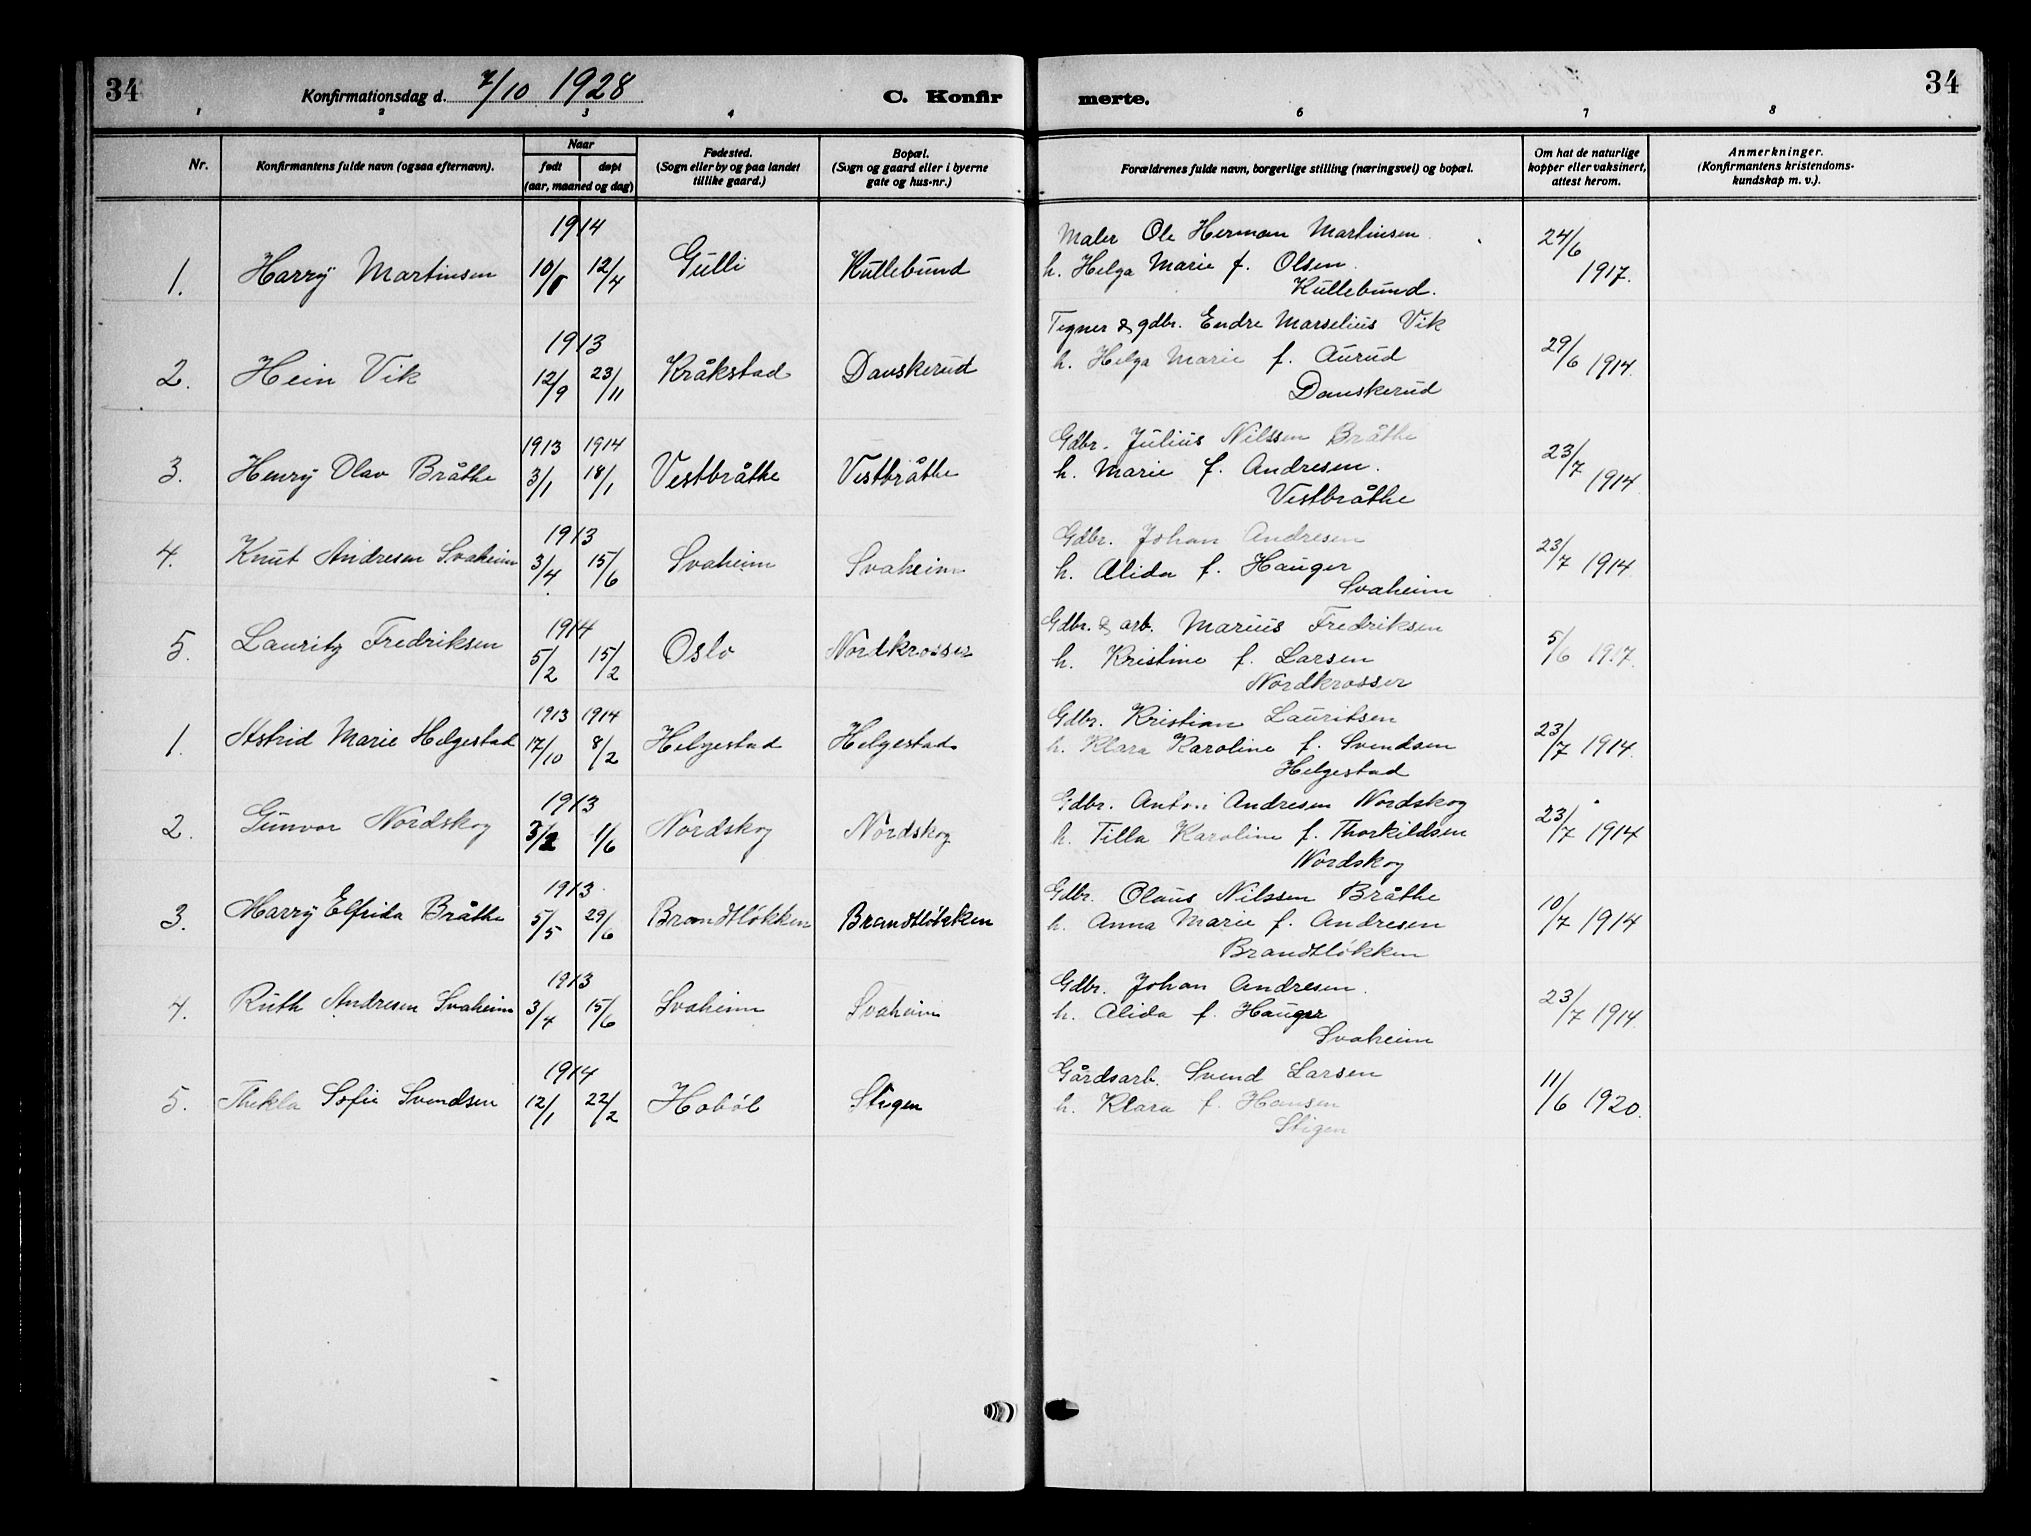 34
Konfirmationsdag d. 7/10 1928
C. Konfir
merte.
34
1 2 3 4 6 7 8
Nr.
Konfirmantens fulde navn (ogsaa efternavn).
Naar
født døpt
(aar, maaned og dag)
Fødested.
(Sogn eller by og paa landet
tillike gaard.)
Bopæl.
(Sogn og gaard eller i byerne
gate og hus-nr.)
Forældrenes fulde navn, borgerlige stilling (næringsvei) og bopæl.
Om hat de naturlige
kopper eller vaksinert,
attest herom.
Anmerkninger.
(Konfirmantens kristendoms-
kundskap m. v.).
1914
1. Harry Martinsen 12/4 Gulli Kullebund
Maler Ole Herman Martinsen
h. Helga Marie f. Olsen
Kullebund.
24/6
1917.
1913
2. Hein Vik 12/9 23/11 Kråkstad Danskerud
Tegner & gdbr. Endre Marselius Vik
h. Helga Marie f. Aurud
Danskerud
29/6 1914.
1913 1914
3. Henry Olav Bråthe 3/1 18/1 Vestbråthe Vestbråthe
Gdbr. Julius Nilssen Bråthe
h. Marie f. Andresen.
Vestbråthe
23/7 1914
1913
4. Knut Andresen Svaheim 3/4 15/6 Svaheim Svaheim
Gdbr. Johan Andresen
h. Alida f. Hauger
Svaheim
23/7 1914
1914
5. Lauritz Fredriksen 5/2 15/2 Oslo Nordkrosser
Gdbr. & arb. Marius Fredriksen
h. Kristine f. Larsen
Nordkrosser
5/6 1917.
1913 1914
1. Astrid Marie Helgestad 17/10 8/2 Helgestad Helgestad
Gdbr. Kristian Lauritsen
h. Klara Karoline f. Svendsen
Helgestad
23/7 1914.
1913
2. Gunvor Nordskog 1/6 Nordskog Nordskog
Gdbr. Anton Andresen Nordskog
h. Tilla Karoline f. Thorkildsen
Nordskog
23/7 1914
1913
3. Harry Elfrida Bråthe 5/5 29/6 Brandtløkken Brandtløkken
Gdbr. Olaus Nilssen Bråthe
h. Anna Marie f. Andresen
Brandtløkken
10/7 1914
1913
4. Ruth Andresen Svaheim 3/4 15/6 Svaheim Svaheim
Gdbr. Johan Andresen.
h. Alida f. Hauger
Svaheim
23/7 1914.
1914
5. Thekla Sofie Svendsen 12/1 22/2 Hobøl Stigen
Gårdsarb. Svend Larsen
h. Klara f. Hansen
Stigen
11/6 1920.